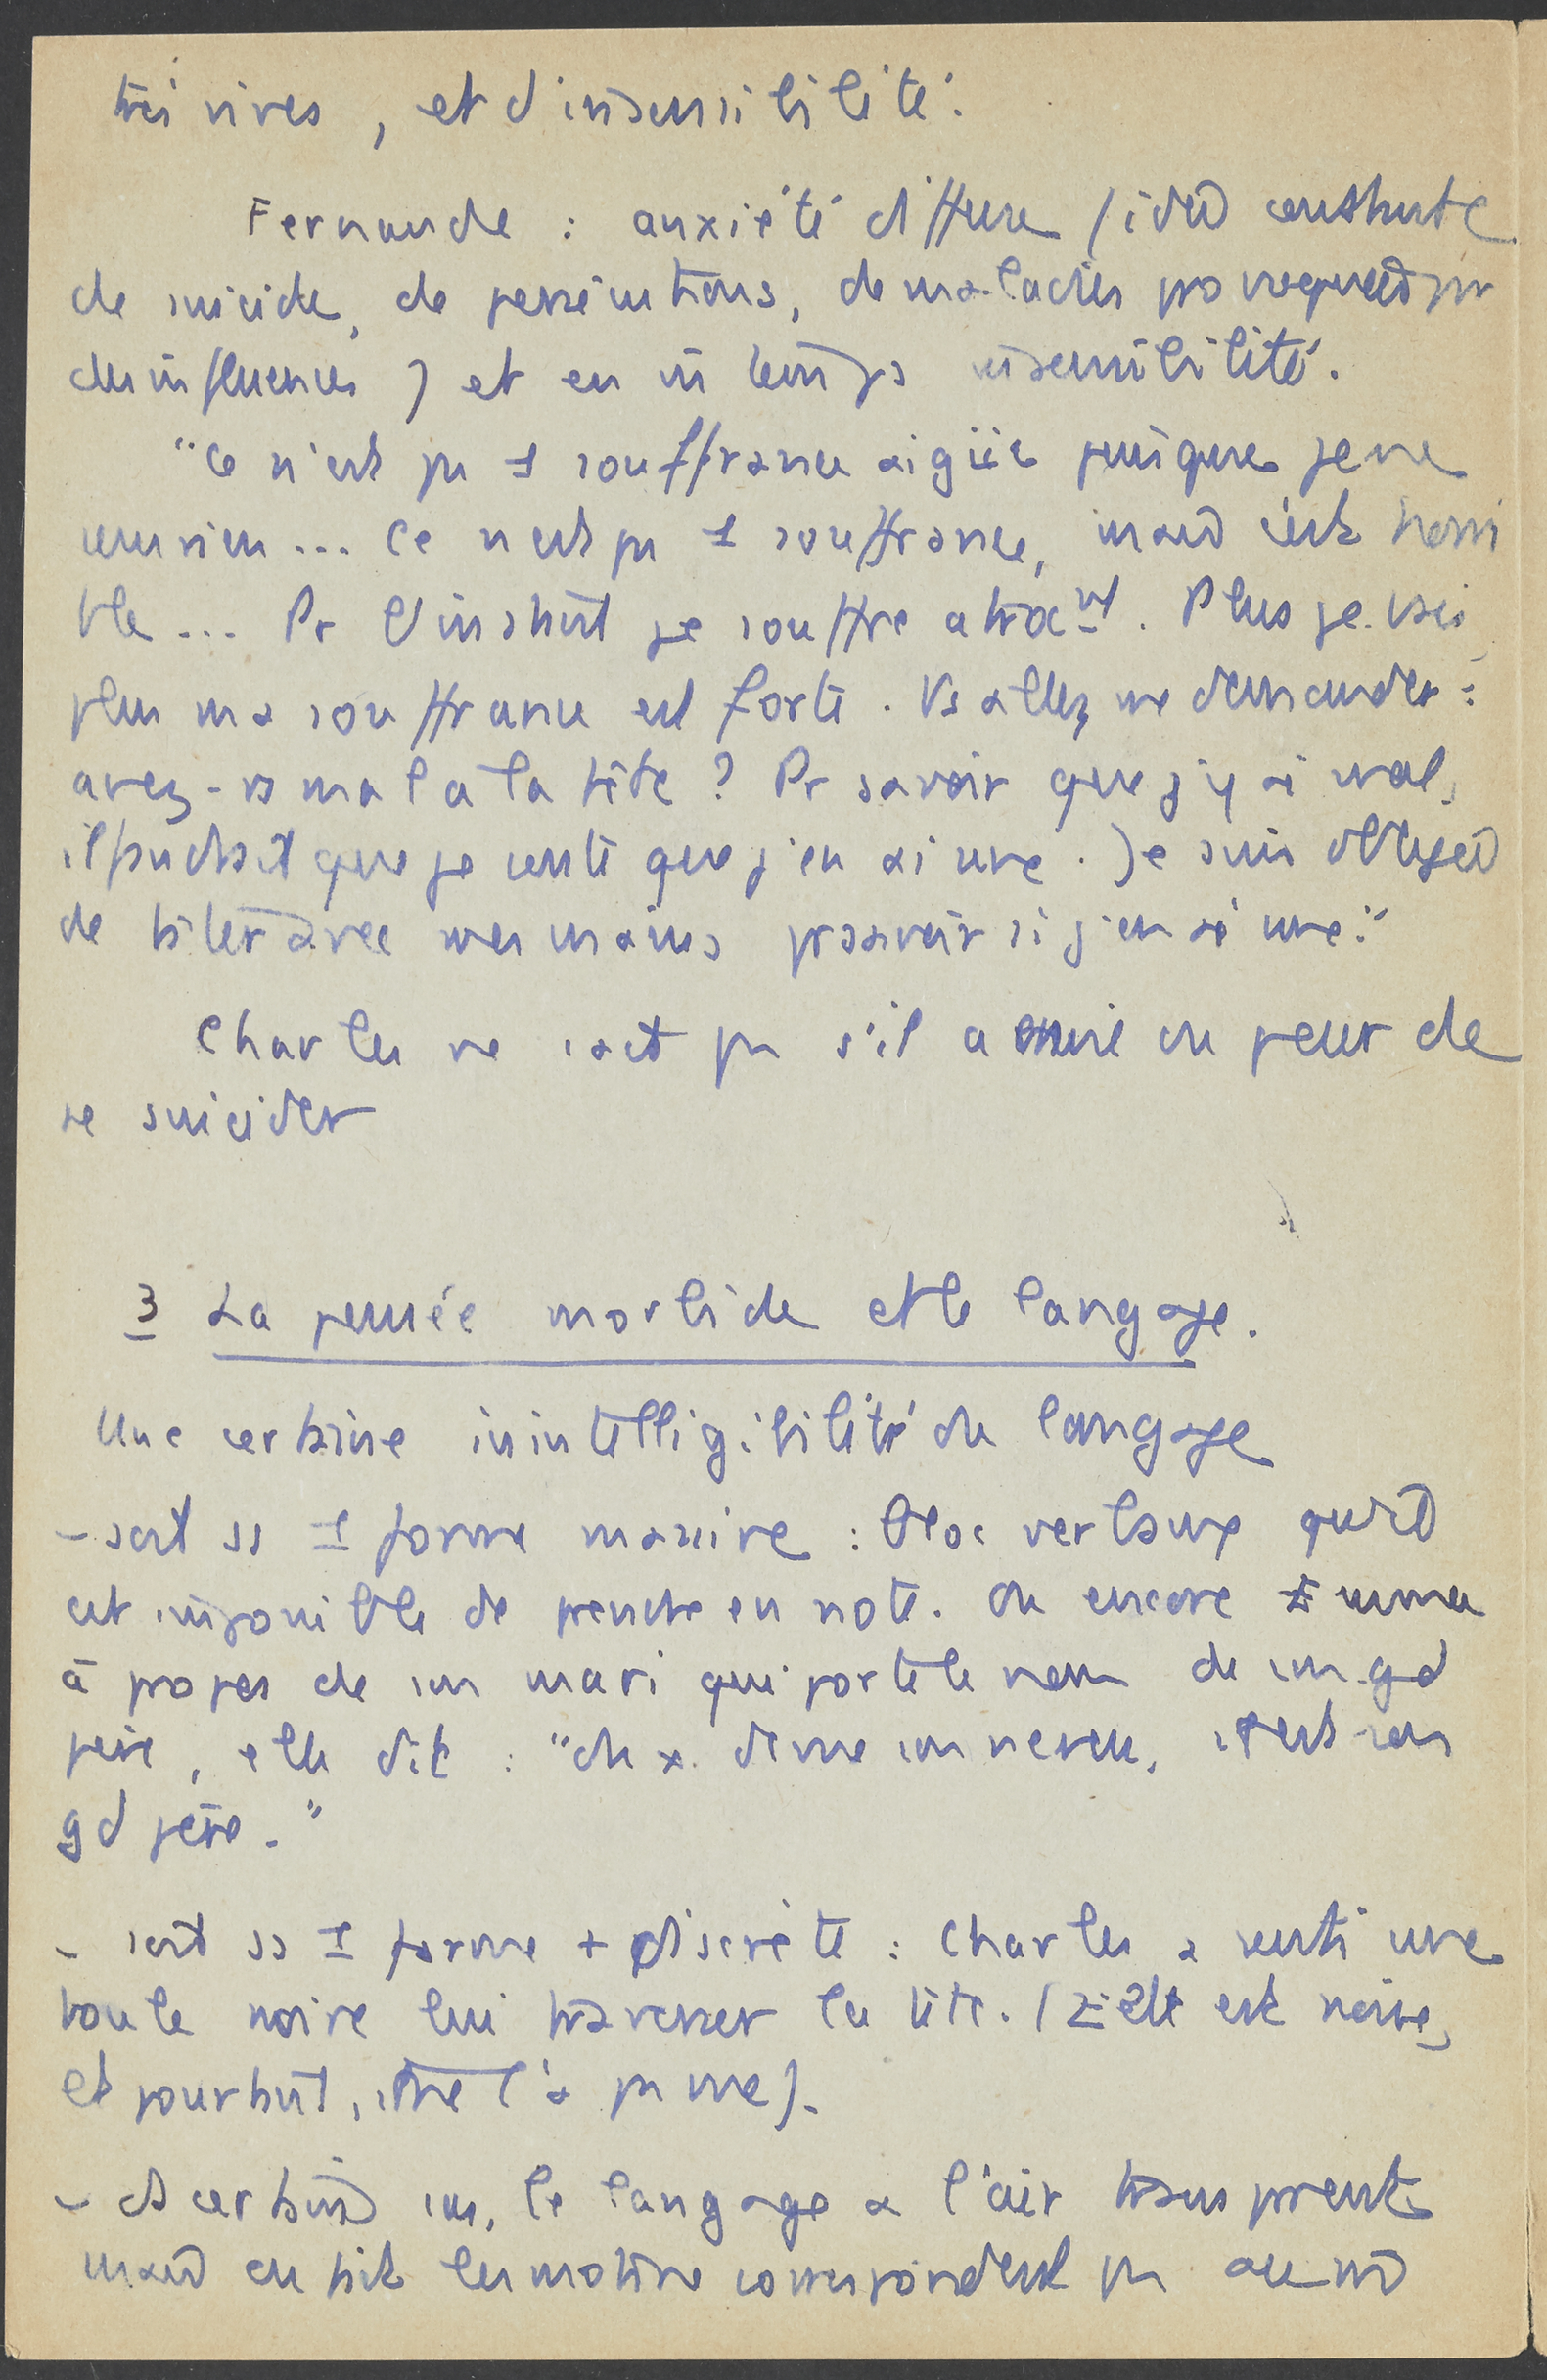 très vives, et d'insensibilité.
Fernande : anxiété diffuse (idées constante
de suicide, de persécutions, de maladies provoquées par
des influences) et en m̄ temps insensibilité.
"Ce n'est pas 1 souffrance aigüe puisque je ne
sens rien... Ce n'est pas 1 souffrance, mais c'est horri
ble... Pr l'instant je souffre atrocmt. Plus je vais,
plus ma souffrance est forte. Vs allez me demander :
avez-vs mal à la tête ? Pr savoir que j'y ai mal,
il faudrait que je sente que j'en ai une. Je suis obligée
de tâter avec mes mains pr savoir si j'en ai une."
Charles ne sait pas s'il a envie ou peur de
se suicider
3 La pensée morbide et le langage.
Une certaine inintelligibilité du langage
- soit ss 1 forme massive : Bloc verbaux qu'il
est impossible de prendre en note. Ou encore Emma
à propos de son mari qui porte le nom de son gd
père, elle dit : "du x. de me son neveu, c'est son
gd père."
- soit ss 1 forme + discrète : Charles a senti une
boule noire lui traverser la tête. (elle est noire,
et pourtant, il ne l'a pas vue).
- Ds certains cas, le langage a l'air transparent
mais en fait les mots ne correspondent pas au m̄